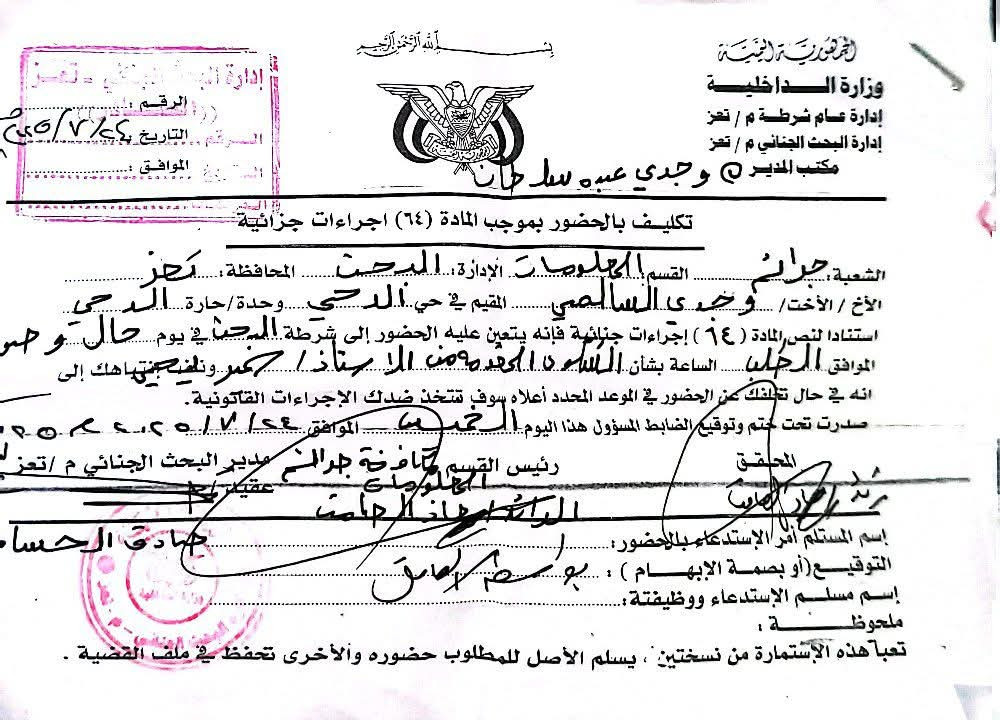 بسم الله الرحمن الرحيم
الجمهورية اليمنية
وزارة الداخلية
إدارة عام شرطة م / تعز
إدارة البحث الجنائي م / تعز
مكتب المدير
إدارة البحث الجنائي - تعز
الرقم :
التاريخ ٢٤ / ٧ / ٢٠٢٥
الموافق :
وجدي عبده
تكليف بالحضور بموجب المادة (٦٤) اجراءات جزائية
الشعبة: جرائم القسم المعلومات الإدارة: البحث المحافظة: تعز
الأخ / الأخت/ وجدي السالمي المقيم في حي الدحي وحدة/حارة الدحي
استنادا لنص المادة (٦٤) إجراءات جنائية فإنه يتعين عليه الحضور إلى شرطة البحث في يوم حال
الموافق الساعة بشأن الشكوى المقدمة من الاستاذ/ ونلفت إنتباهك إلى
انه في حال تخلفك عن الحضور في الموعد المحدد أعلاه سوف تتخذ ضدك الإجراءات القانونية.
صدرت تحت ختم وتوقيع الضابط المسؤول هذا اليوم الخميس الموافق ٢٤ / ٧ / ٢٠٢٥م
المحقق رئيس القسم مكافحة جرائم المعلومات مدير البحث الجنائي م / تعز
عقيد /
إسم المستلم أمر الإستدعاء بالحضور: صادق
التوقيع(أو بصمة الإبهام ) :
إسم مسلم الإستدعاء ووظيفتة :
ملحوظة :
تعبأ هذه الإستمارة من نسختين ، يسلم الأصل للمطلوب حضوره والأخرى تحفظ في ملف القضية .